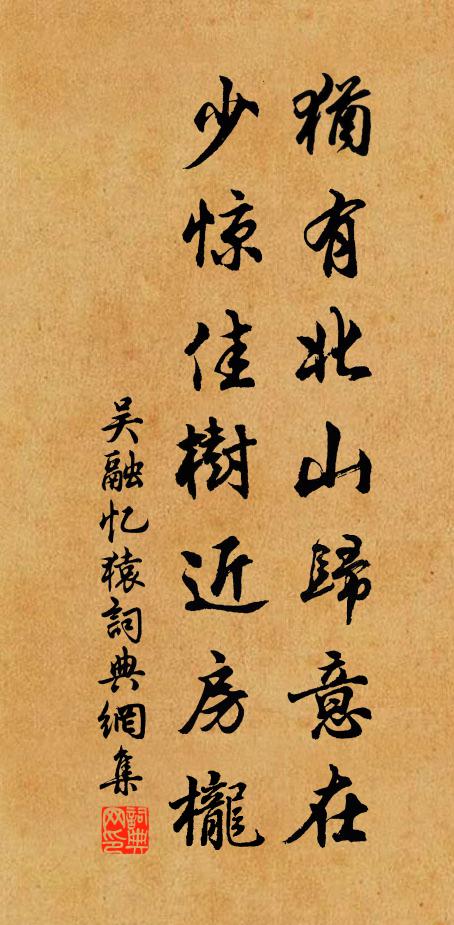 猶有北山歸意在
少惊佳樹近房櫳
吴融忆猿詞典網集
詞典网印